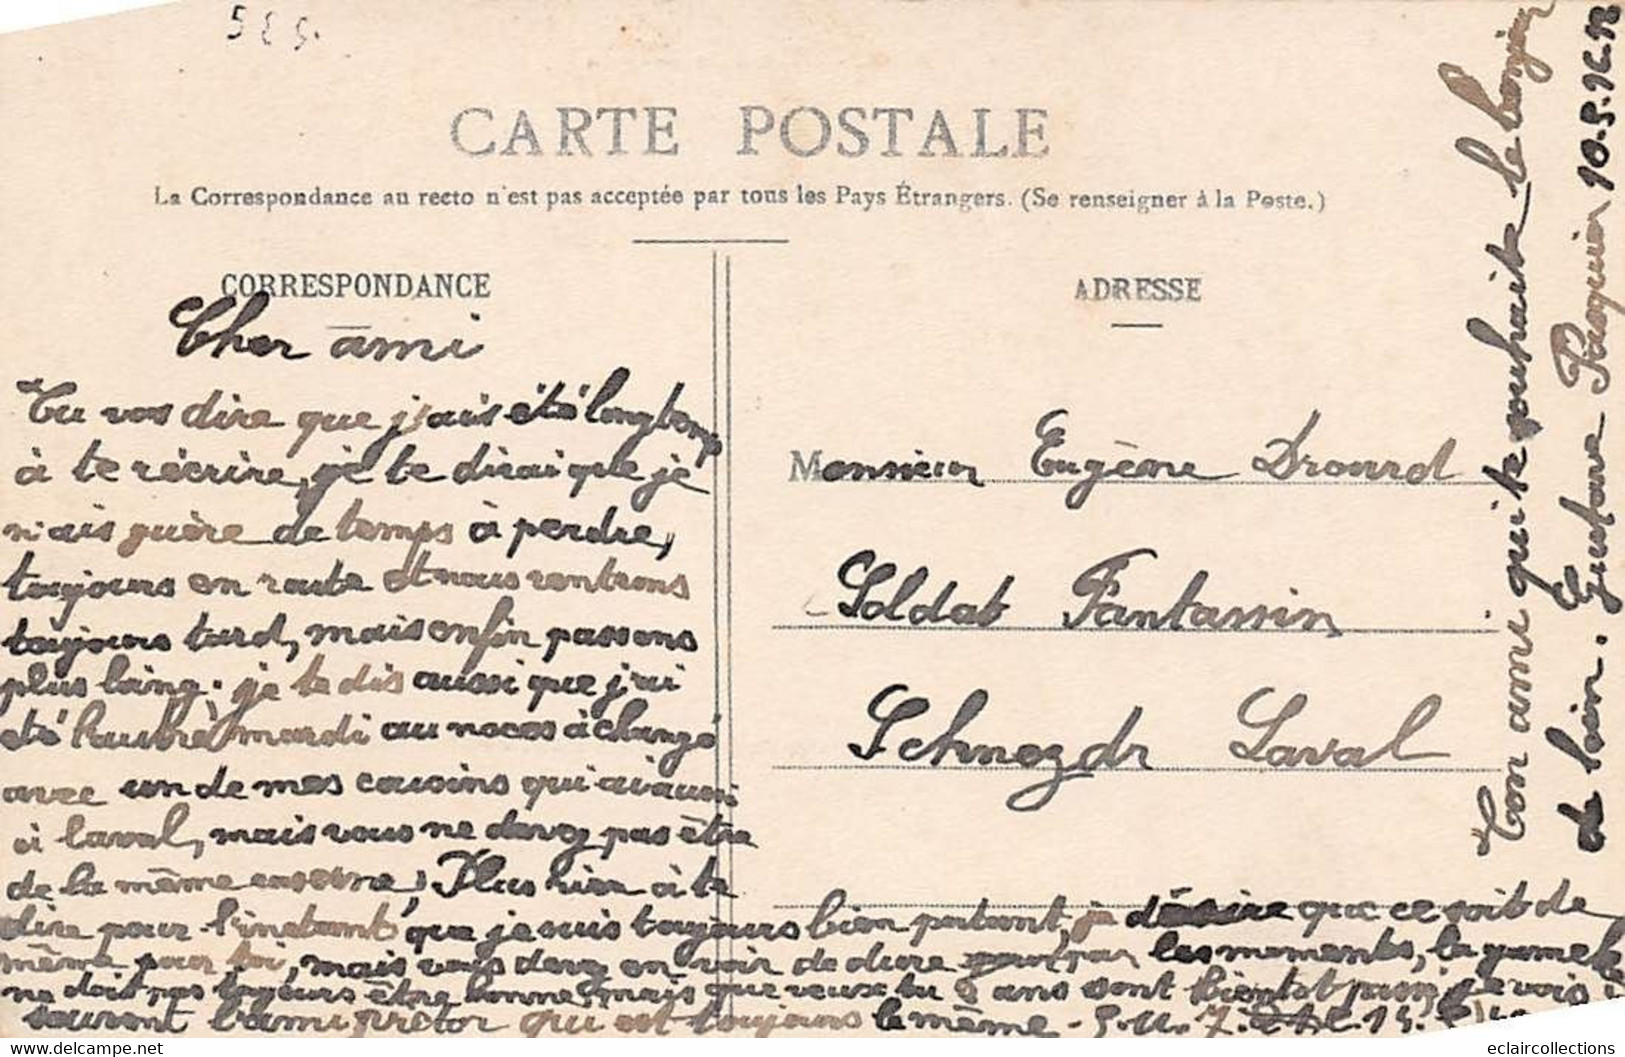 CARTE POSTALE
La Correspondance au recto n'est pas acceptée par tous les Pays Étrangers. (Se renseigner à la Poste.)
CORRESPONDANCE
Cher ami
Tu vas dire que j'ais été longtemp
à te récrire, je te dirai que je
n'ais guère de temps à perdre,
toujours en route et nous rentrons
toujours tard, mais enfin passons
plus loing. je te dis aussi que j'ai
été l'autre mardi au noces à changé
avec un de mes cousins qui
à laval, mais vous ne devez pas être
de la même, Plus rien à te
dire pour l'instant, que je suis toujours bien portant, je désire que ce soit de
même pour toi, mais vous devez en voir de dure par les moments, la gamelle
ne doit pas toujours être bonne mais que veux tu 2 ans sont bientot je vois
souvent l'ami qui est toujours le même -
ADRESSE
Monsieur Eugène Drouard
Soldat Fantassin
Laval
Ton ami qui te souhaite le bonjour
de loin. Gustave Pasquier
eclaircollections
www.delcampe.net